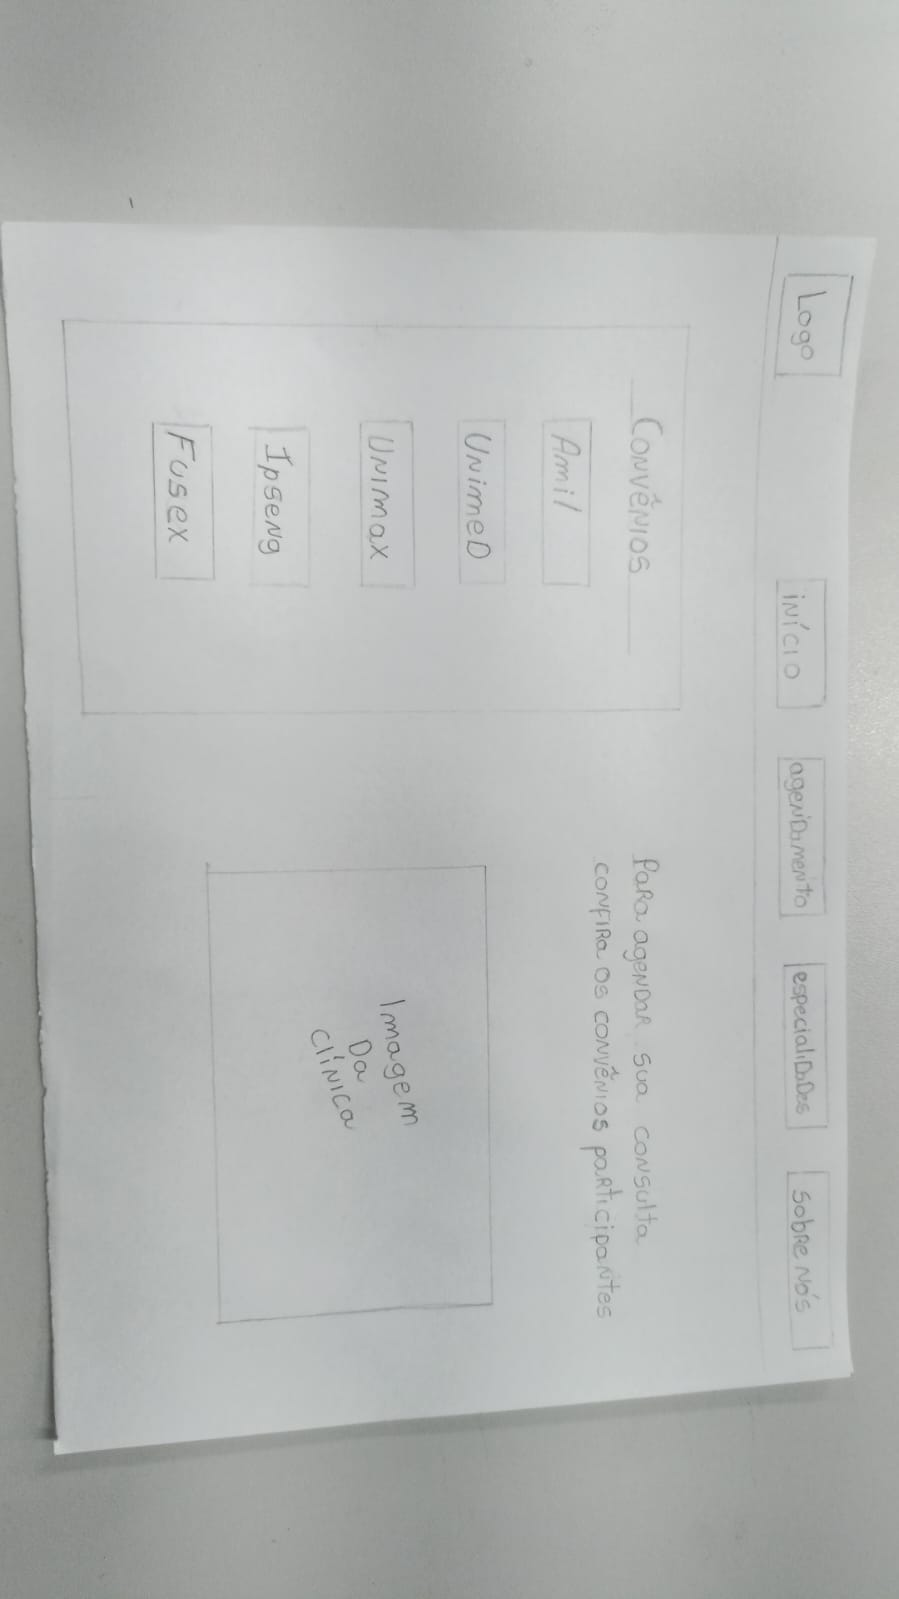 Logo
início
agendamento
especialidades
sobre nós
Convênios
Amil
Unimed
Unimax
Ipseng
Fusex
Para agendar sua consulta
confira os convênios participantes
Imagem
Da
clínica